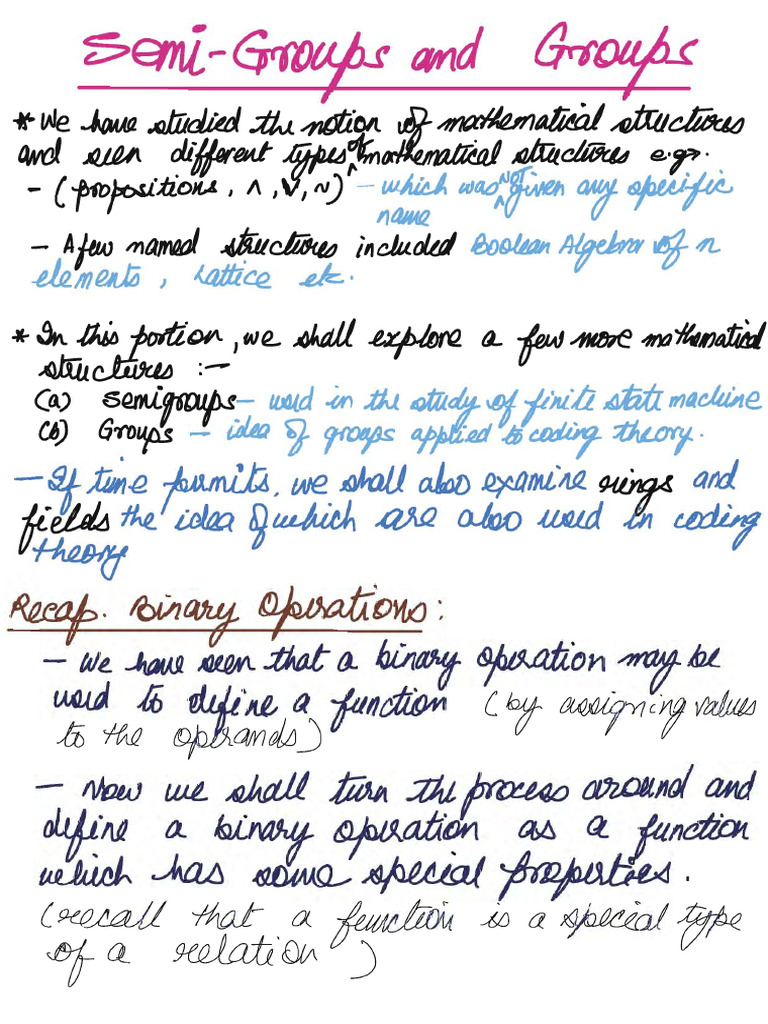 Semi-Groups and Groups
* We have studied the notion of mathematical structures
and seen different types of mathematical structures e.g.
- (propositions, ∧, ∨, ~) - which was NOT given any specific
name
- A few named structures included Boolean Algebra of n
elements, Lattice etc.
* In this portion, we shall explore a few more mathematical
structures :-
(a) Semigroups - used in the study of finite state machine
(b) Groups - idea of groups applied to coding theory.
- If time permits, we shall also examine rings and
fields the idea of which are also used in coding
theory
Recap. Binary Operations:
- We have seen that a binary operation may be
used to define a function (by assigning values
to the operands)
- Now we shall turn the process around and
define a binary operation as a function
which has some special properties.
(recall that a function is a special type
of a relation)